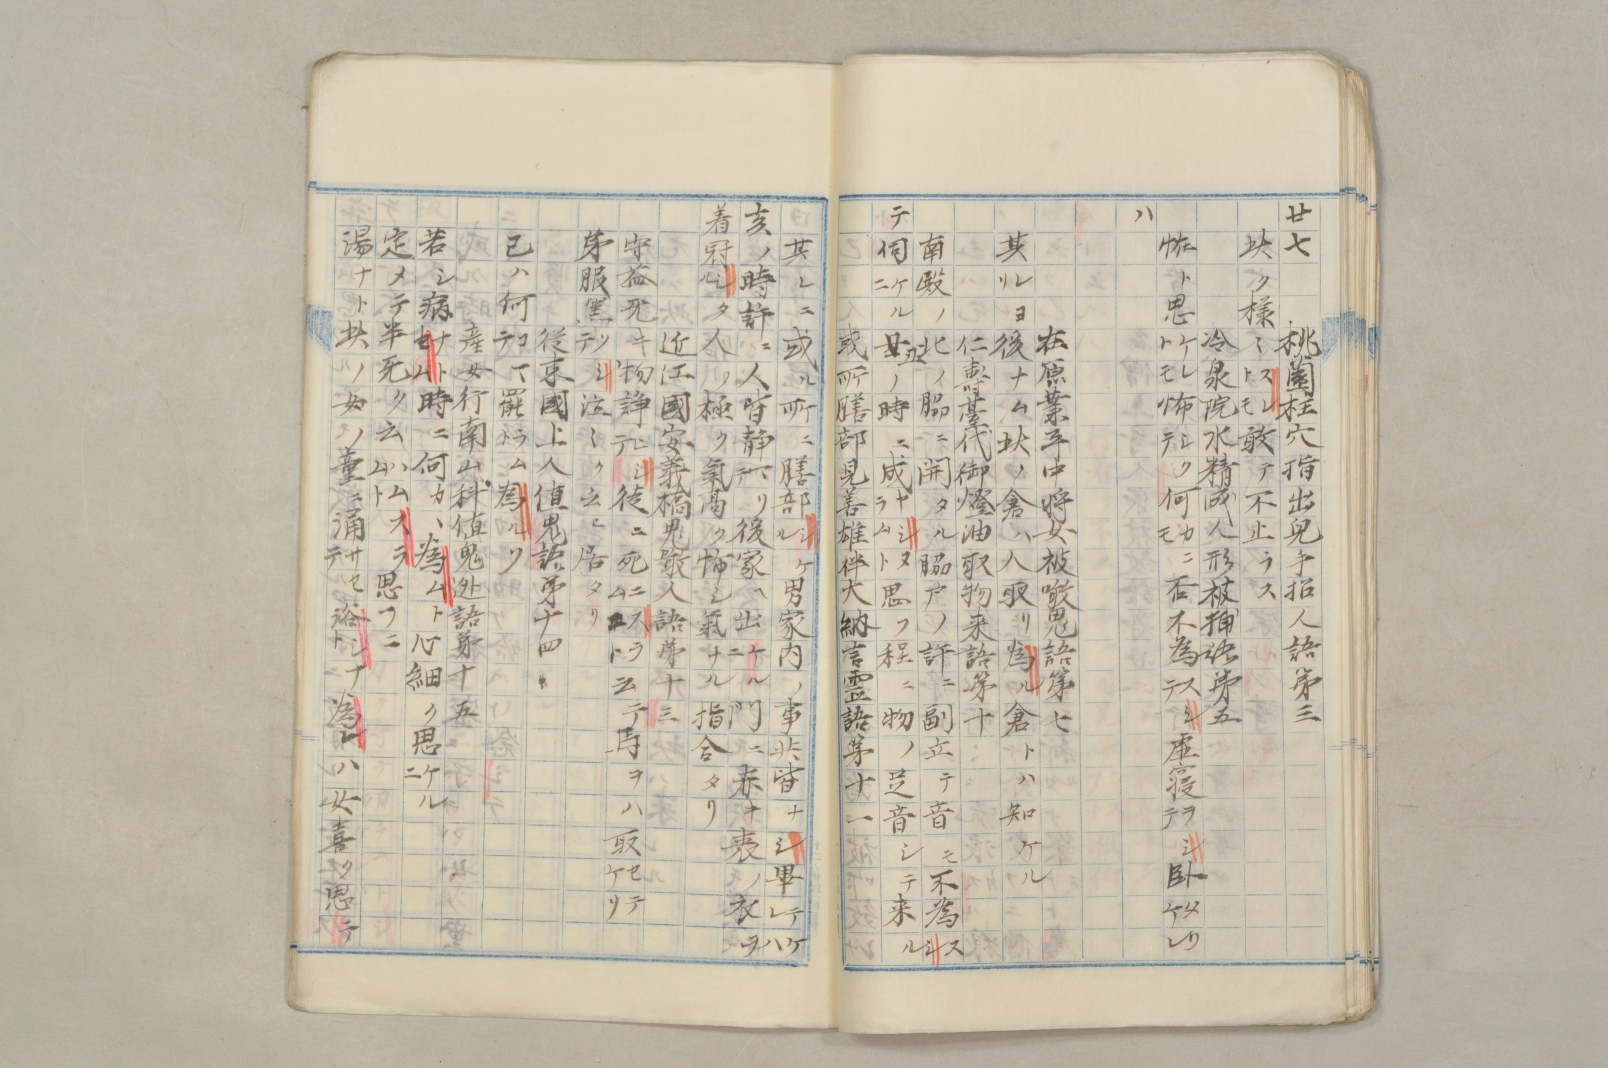 廿七 桃薗柱穴指出兒手招人語第三
此ク様ミスレトモ敢テ不止ラス
冷泉院水精成人形被捕語第五
怪ト思ケレトモ怖シクテ何カニモ否不為シテス虚寝ヲシテ臥タリケレ
ハ
在原業平中将女被噉鬼語第七
其レヨリ後ナム此ノ倉ハ人取リ為ル倉トハ知ケル
仁壽殿臺代御燈油取物来語第十
南殿ノ北ノ脇ニ開タル脇戸ノ許ニ副立テ音モ不為スシ
テ伺ケルニ丑ノ時ニ成ヤシヌラムト思フ程ニ物ノ足音シテ来ル
或所膳部見善雄伴大納言霊語第十一
其レニ或ル所ニ膳部シケル男家内ノ事共皆ナシ畢テケレハ
亥ノ時許ニ人皆静マリテ後家ヘ出ケルニ門ニ赤キ表ノ衣ヲ
着冠シタル人ノ極ク氣高ク怖シ氣ナル指合タリ
近江國安義橋鬼噉人語第十三
守益死キ物諍ヒシテ徒ニ死ニスラムト云テ馬ヲハ取セテケリ
弟服黒シテリ泣ミク云ヒ居タリ
従東國上人値鬼語第十四
己ハ何コマテ罷ラムト為ルソ
産女行南山科値鬼迯語第十五
若シ病ナトセム時ニ何カハ為ムト心細ク思ケルニ
定メテ半死ク云ハムスラムト思フニ
湯ナト此ノ女ノ童ニ涌サセテ浴シナト為レハ女喜ク思テ